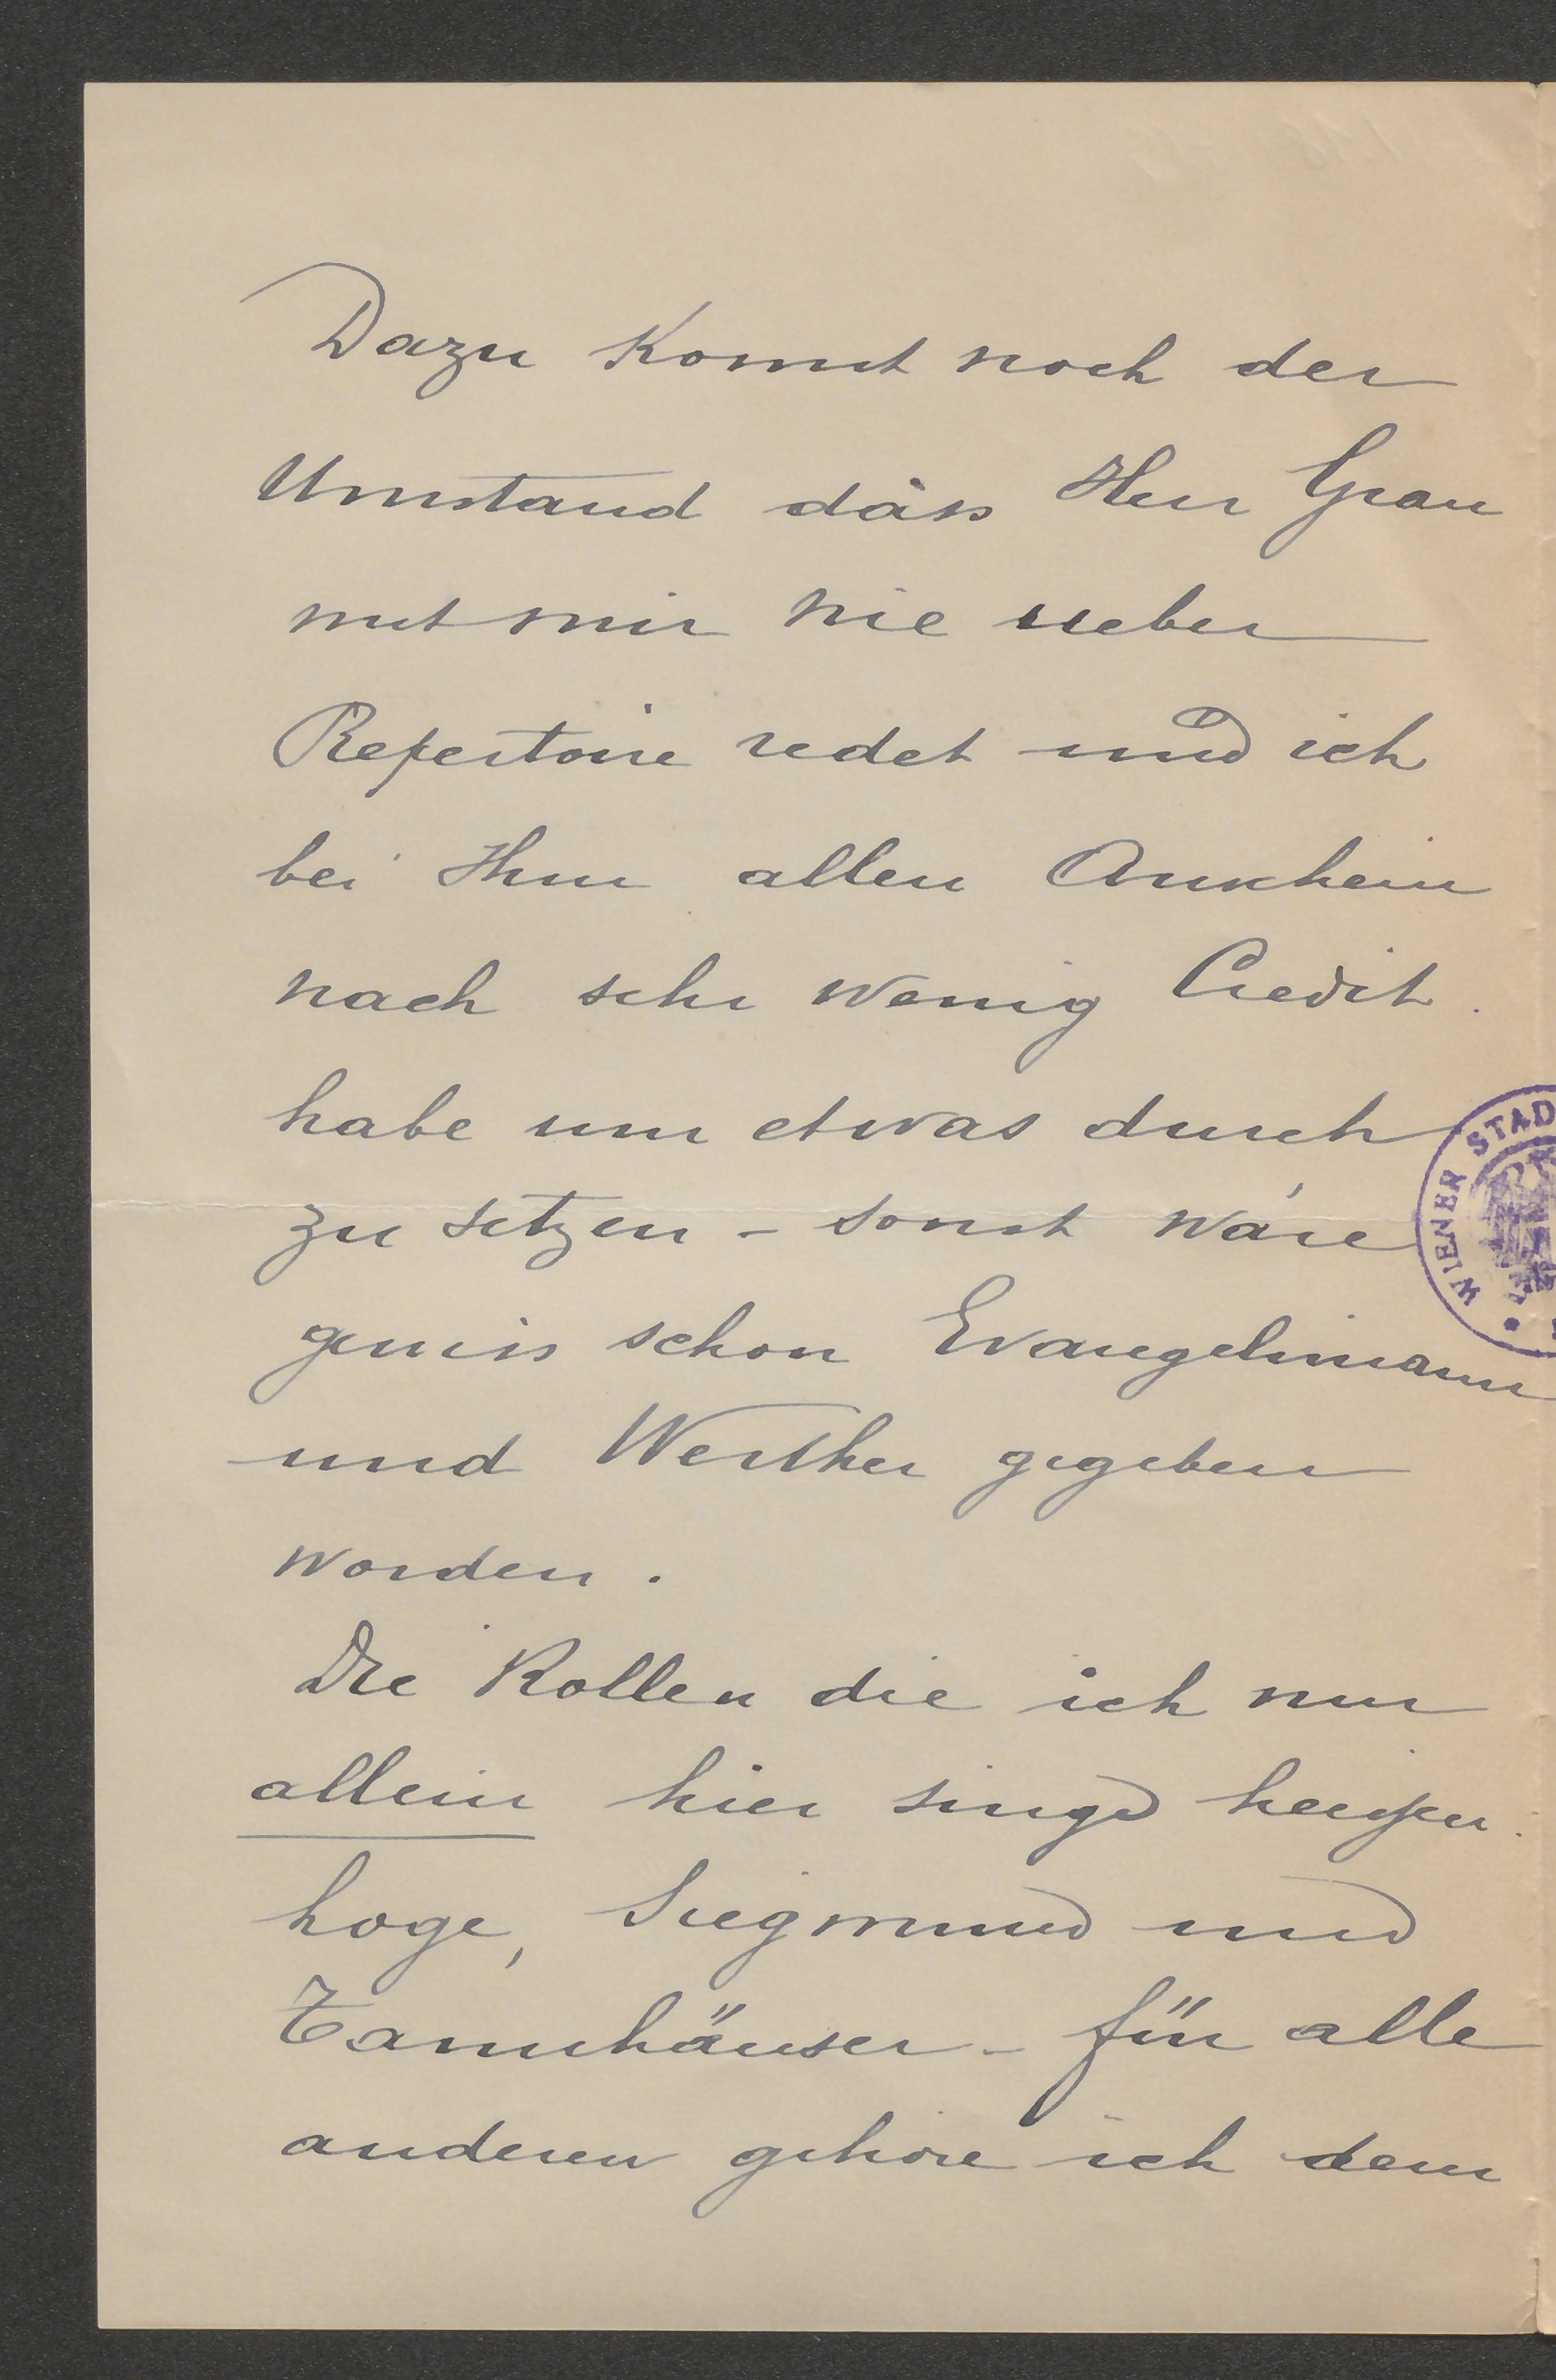 Dazu komt noch der
Umstand däss Herr Grau
mit mir nie ueber
Repertoire redet und ich
bei Ihm allen Anschein
nach sehr wenig Credit
habe um etwas durch
zu setzen - sonst wäre
gewiss schon Evangelimann
und Werther gegeben
worden.
Die Rollen die ich nur
allein hier singe heissen:
Loge, Siegmund und
Tannhäuser - für alle
anderen gehöre ich dem
WIENER STAD